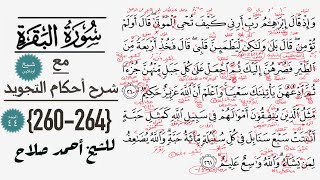 وَإِذْ قَالَ إِبْرَٰهِـۧمُ رَبِّ أَرِنِى كَيْفَ تُحْىِ ٱلْمَوْتَىٰ قَالَ أَوَلَمْ
تُؤْمِن قَالَ بَلَىٰ وَلَـٰكِن لِّيَطْمَئِنَّ قَلْبِى قَالَ فَخُذْ أَرْبَعَةً مِّنَ
ٱلطَّيْرِ فَصُرْهُنَّ إِلَيْكَ ثُمَّ ٱجْعَلْ عَلَىٰ كُلِّ جَبَلٍ مِّنْهُنَّ جُزْءًا
ثُمَّ ٱدْعُهُنَّ يَأْتِينَكَ سَعْيًا وَٱعْلَمْ أَنَّ ٱللَّهَ عَزِيزٌ حَكِيمٌ ٢٦٠
مَّثَلُ ٱلَّذِينَ يُنفِقُونَ أَمْوَٰلَهُمْ فِى سَبِيلِ ٱللَّهِ كَمَثَلِ حَبَّةٍ
أَنۢبَتَتْ سَبْعَ سَنَابِلَ فِى كُلِّ سُنۢبُلَةٍ مِّا۟ئَةُ حَبَّةٍ وَٱللَّهُ يُضَـٰعِفُ
لِمَن يَشَآءُ وَٱللَّهُ وَٰسِعٌ عَلِيمٌ ٢٦١
سُورَةُ البَقَرَةِ
مع
شرح أحكام التجويد
{260-264}
للشيخ أحمد صلاح